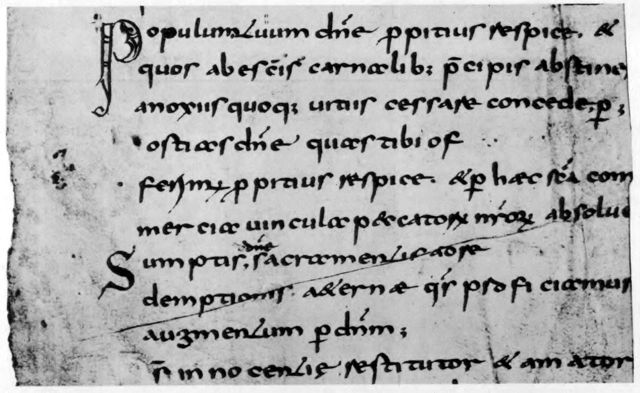 Populum tuum dn̄e ꝓpitius respice · &
quos ab escis̄ carnalib; p̄cipis abstine
a noxiis quoq; uitiis cessare concede · ꝑ ;
ostias dn̄e quas tibi of
ferim᷒ ꝓpitius respice · & ꝑ haec sc̄a com
mercia uincula peccatoꝝ nr̄oꝝ absolue
Sumptis dn̄e sacramentis ad re
demptionis a&ernae qs̄ proficiamus
augmentum ꝑ dn̄m ;
innocentię restitutor & amator